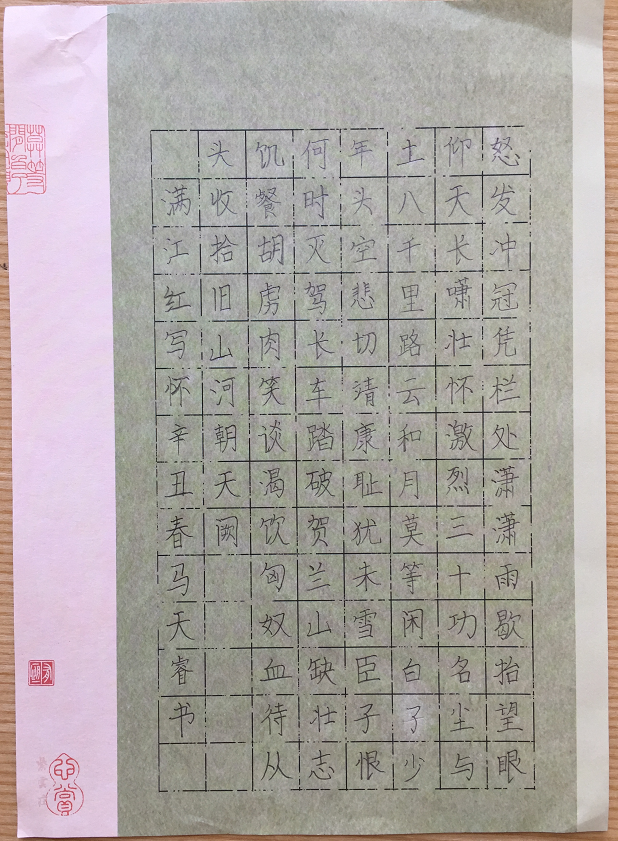 怒发冲冠凭栏处潇潇雨歇抬望眼
仰天长啸壮怀激烈三十功名尘与
土八千里路云和月莫等闲白了少
年头空悲切靖康耻犹未雪臣子恨
何时灭驾长车踏破贺兰山缺壮志
饥餐胡虏肉笑谈渴饮匈奴血待从
头收拾旧山河朝天阙
满江红写怀辛丑春马天睿书